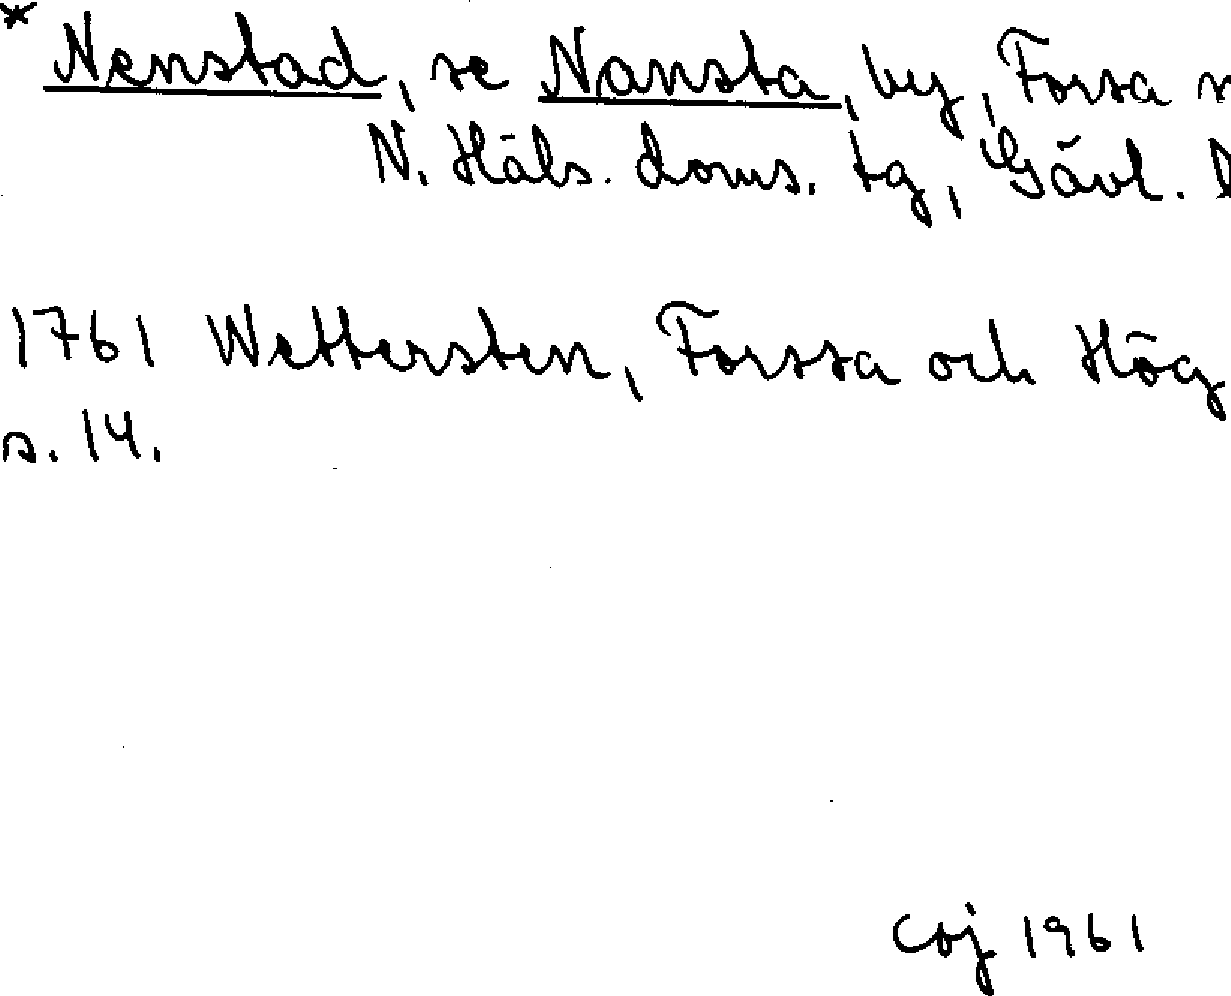 * Nenstad, se Nansta, by, Forsa
N. Häls. doms. tg, Gävl.
1761 Wettersten, Forssa och Hög
s. 14.
coj 1961